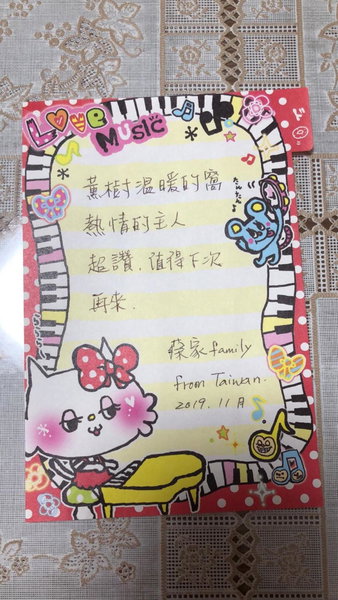 LOVE
MUSIC
薫樹温暖的窩
熱情的主人
超讚，值得下次
再来．
蔡家family
from Taiwan.
2019.11月